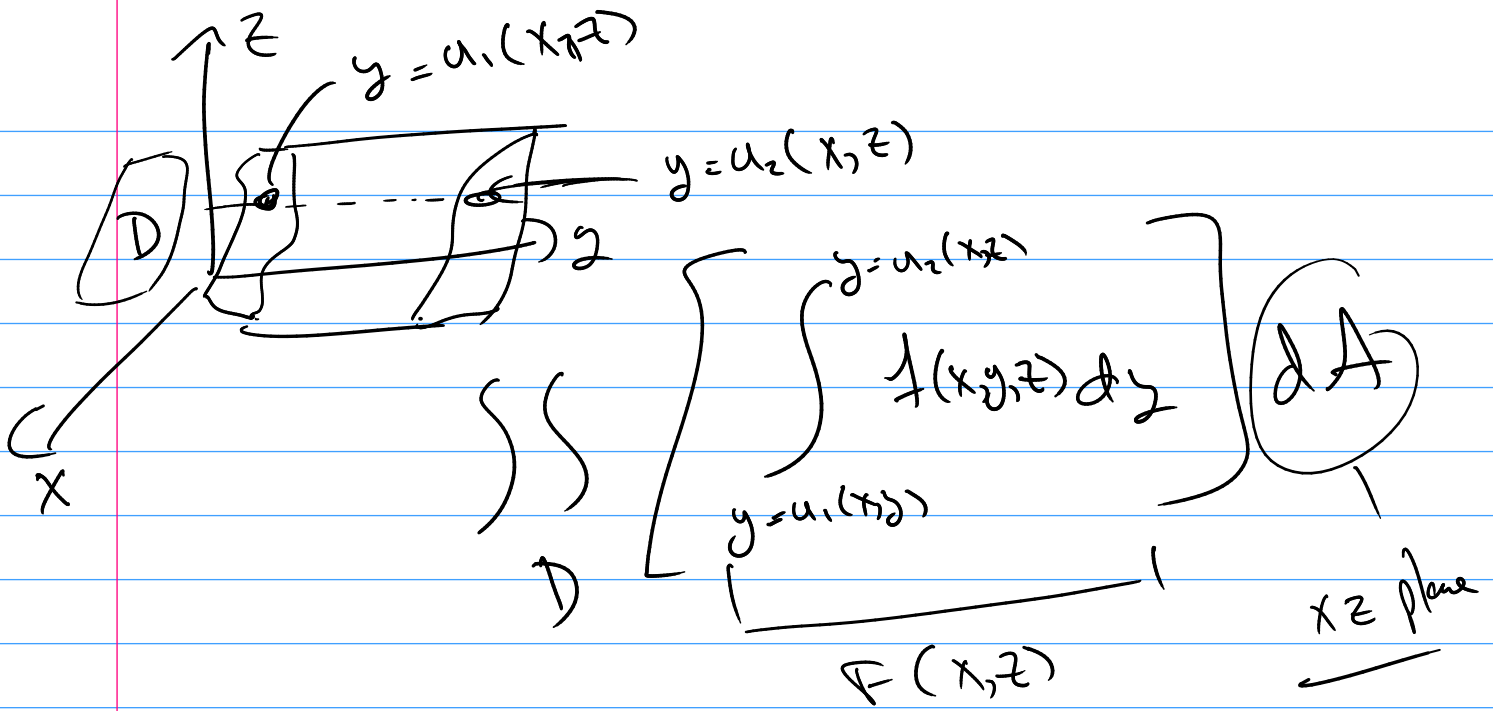 z
y = u₁(x,z)
y = u₂(x,z)
D
y
x
∬_D [ ∫_{y=u₁(x,y)}^{y=u₂(x,z)} f(x,y,z) dy ] dA
F(x,z)
xz plane